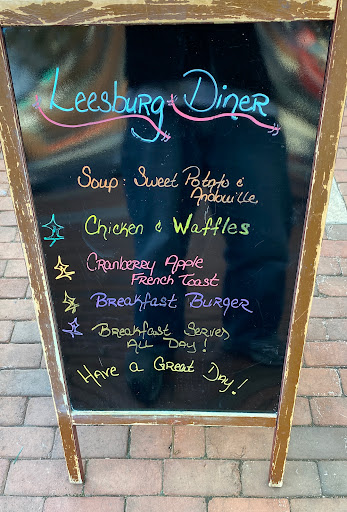 Leesburg Diner
Soup: Sweet Potato &
Andouille
Chicken & Waffles
Cranberry Apple
French Toast
Breakfast Burger
Breakfast Serves
All Day!
Have a Great Day!